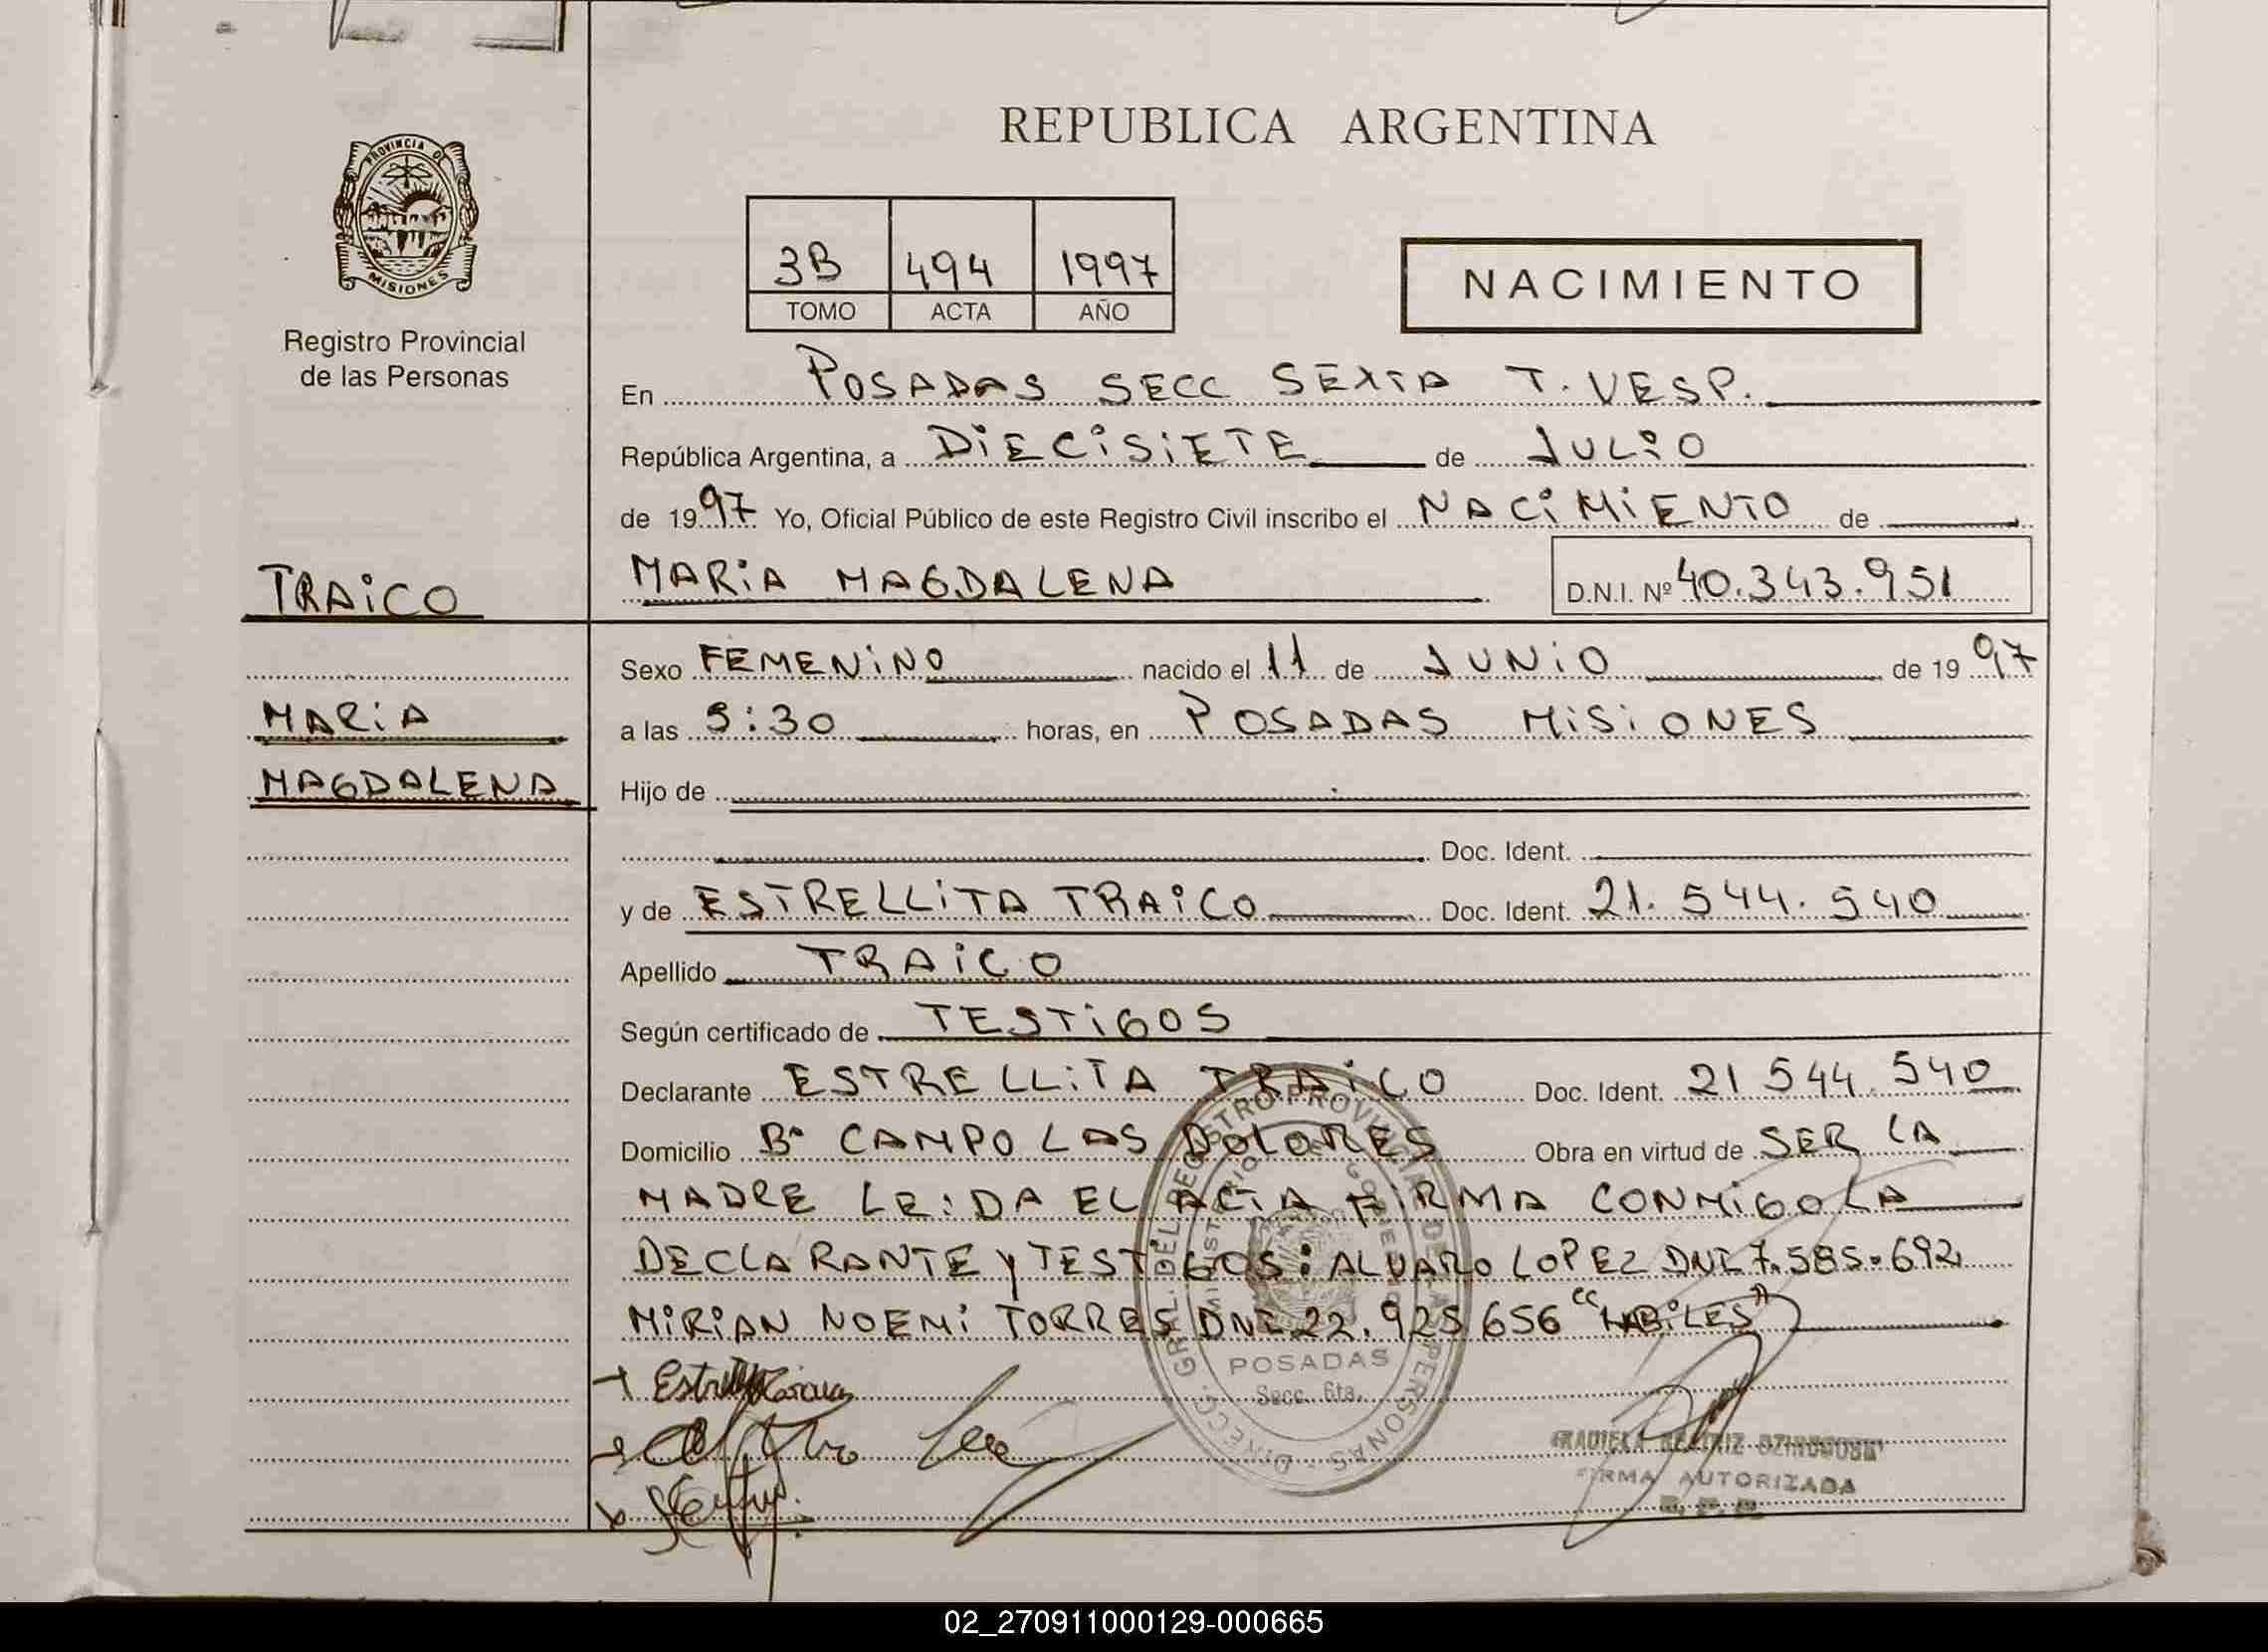 REPUBLICA ARGENTINA
PROVINCIA DE
MISIONES
Registro Provincial
de las Personas
3B 494 1997
TOMO ACTA AÑO
NACIMIENTO
En POSADAS SECC SEXTA T. VESP.
República Argentina, a DIECISIETE de JULIO
de 1997 Yo, Oficial Público de este Registro Civil inscribo el NACIMIENTO de
TRAICO
MARIA MAGDALENA D.N.I. Nº 40.343.951
Sexo FEMENINO nacido el 11 de JUNIO de 1997
MARIA
a las 5:30 horas, en POSADAS MISIONES
MAGDALENA
Hijo de
Doc. Ident.
y de ESTRELLITA TRAICO Doc. Ident. 21.544.540
Apellido TRAICO
Según certificado de TESTIGOS
Declarante ESTRELLITA TRAICO Doc. Ident. 21 544.540
Domicilio Bº CAMPO LAS DOLORES Obra en virtud de SER LA
MADRE LEIDA EL ACTA FIRMA CONMIGO LA
DECLARANTE y TESTIGOS: ALVARO LOPEZ DNI 7.585.692
MIRIAN NOEMI TORRES DNI 22.925 656 "HABILES"
DIRECC. GRAL. DEL REGISTRO PROVINCIAL DE LAS PERSONAS
MINISTERIO DE GOBIERNO
POSADAS
Secc. 6ta.
BEATRIZ
FIRMA AUTORIZADA
02_270911000129-000665